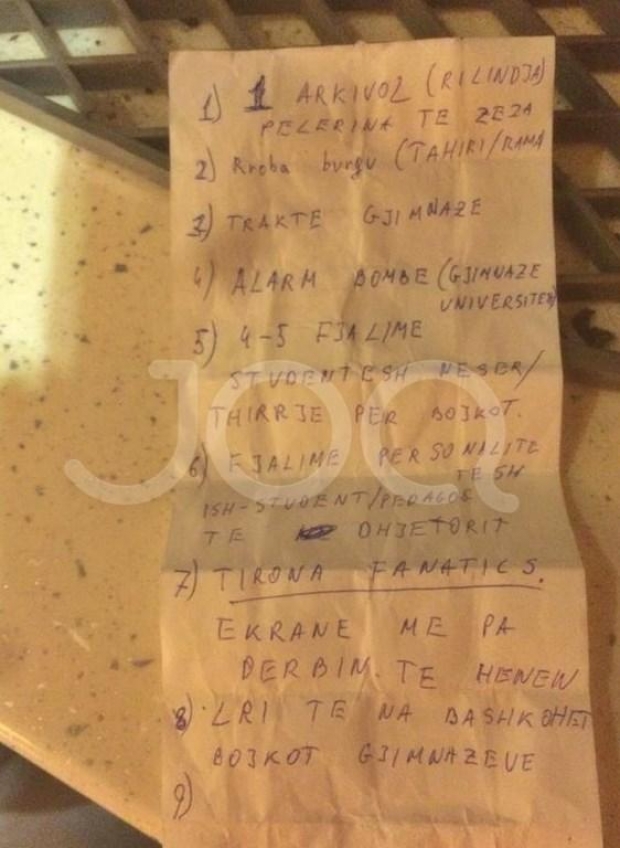 1) 1 ARKIVOL (RILINDJA)
PELERINA TE ZEZA
2) Rroba burgu (TAHIRI/RAMA
3) TRAKTE GJIMNAZE
4) ALARM BOMBE (GJIMNAZE
UNIVERSITET)
5) 4-5 FJALIME
STUDENTESH NESER/
THIRRJE PER BOJKOT.
6) FJALIME PERSONALITE
TESH
ISH-STUDENT/PEDAGOG
TE DHJETORIT
7) TIRONA FANATICS.
EKRANE ME PA
DERBIN. TE HENEN
8) LRI TE NA BASHKOHET
BOJKOT GJIMNAZEVE
9)
JOQ